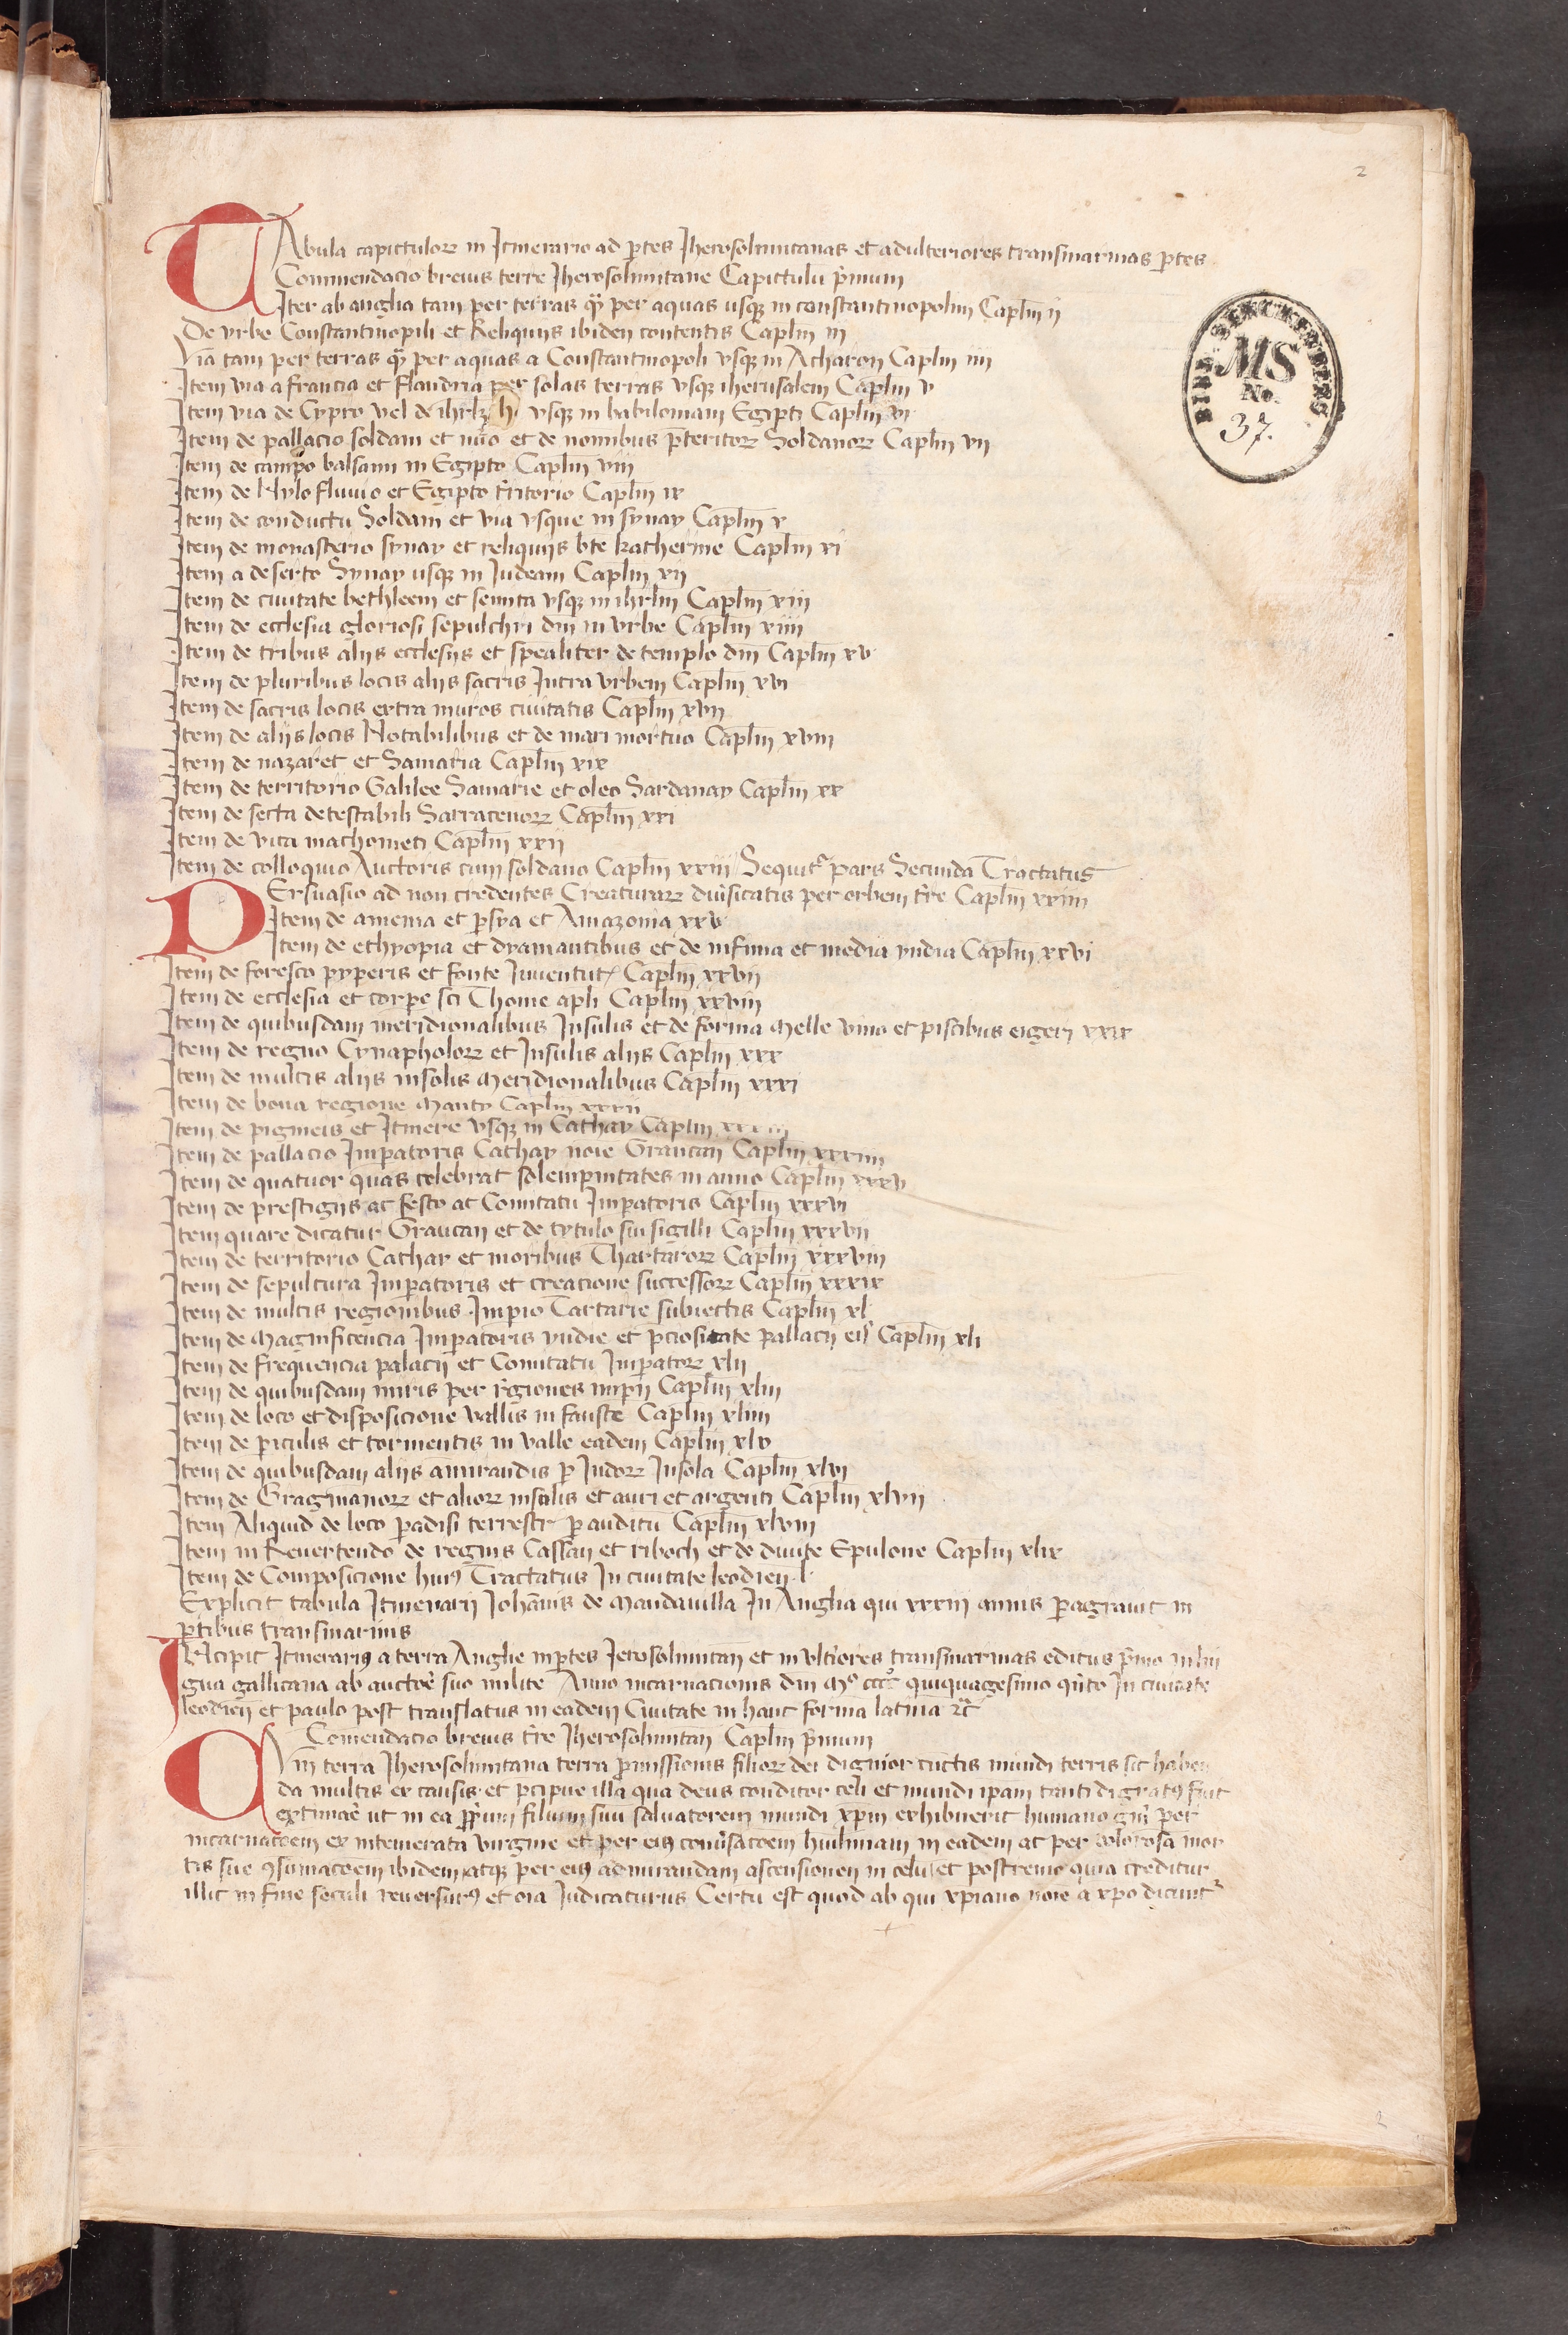 2
TAbula capictulorꝝ in Itinerario ad p̄tes Iherosolimitanas et adulteriores transmarinas p̄tes
Commendacio breuis terre Iherosolimitane Capictulū p̄mum
Iter ab anglia tam per terras qͫ per aquas usqꝫ in constantinopolim Caplm̄ ii
De vrbe Constantinopili et Reliquiis ibidem contentis Caplm̄ iii
Via tam per terras qͫ per aquas a Constantinopoli vsqꝫ in Acharon Caplm̄ iiii
Item via a francia et flandria per solas terras vsqꝫ iherusalem Caplm̄ v
Item via de Cypro vel de ihrlꝫ h vsqꝫ in babiloniam Egipti Caplm̄ vi
Item de pallacio soldani et et de nominibus p̄teritorꝝ Soldanorꝝ Caplm̄ vii
Item de campo balsami in Egipto Caplm̄ viii
Item de Nylo fluuio et Egipto t̄ritorio Caplm̄ ix
Item de conductu Soldani et via vsque in synay Caplm̄ x
Item de monasterio synay et reliquiis bt̄e katherine Caplm̄ xi
Item a deserto Synay usqꝫ in Iudeam Caplm̄ xii
Item de ciuitate bethleem et semita vsqꝫ in ihrlm̄ Caplm̄ xiii
Item de ecclesia gloriosi sepulchri dn̄i in vrbe Caplm̄ xiiii
Item de tribus aliis ecclesiis et spealiter de templo dn̄i Caplm̄ xv
Item de pluribus locis aliis sacris Intra vrbem Caplm̄ xvi
Item de sacris locis extra muros ciuitatis Caplm̄ xvii
Item de aliis locis Notabilibus et de mari mortuo Caplm̄ xviii
Item de nazaret et Samaria Caplm̄ xix
Item de territorio Galilee Samarie et oleo Sardanay Caplm̄ xx
Item de secta detestabili Sarracenorꝝ Caplm̄ xxi
Item de vita machometi Caplm̄ xxii
Item de colloquio Auctoris cum soldano Caplm̄ xxiii Sequitᷣ pars Secunda Tractatus
PErsuasio ad non credentes Creaturarꝝ diu̓sicatis per orbem t̄re Caplm̄ xxiiii
Item de amenia et p̄sya et Amazonia xxv
Item de ethyopia et dyamantibus et de infima et media yndia Caplm̄ xxvi
Item de foresto pyperis et fonte Iuuentutꝭ Caplm̄ xxvii
Item de ecclesia et corpe sci Thome apli Caplm̄ xxviii
Item de quibusdam meridionalibus Insulis et de forma Melle vino et piscibus eigeri xxix
Item de regno Cynapholorꝝ et Insulis aliis Caplm̄ xxx
Item de multis aliis insolis Meridionalibus Caplm̄ xxxi
Item de bona regione Manty Caplm̄ xxxii
Item de pigmeis et Itinere vsqꝫ in Cathay Caplm̄ xxxiii
Item de pallacio Imp̄atoris Cathay noīe Grautan Caplm̄ xxxiiii
Item de quatuor quas celebrat solempnitates in anno Caplm̄ xxxv
Item de prestigiis ac festo ac Comitatu Imp̄atoris Caplm̄ xxxvi
Item quare dicatur Graucan et de tytulo sui sigilli Caplm̄ xxxvii
Item de territorio Cathar et moribus Thartarorꝝ Caplm̄ xxxviii
Item de sepultura Imp̄atoris et creacione successorꝝ Caplm̄ xxxix
Item de multis regionibus Imp̄io Tartarie subiectis Caplm̄ xl
Item de Magnificencia Imp̄atoris yndie et p̄ciositate pallacii eiꝰ Caplm̄ xli
Item de frequencia palacii et Comitatu Imp̄atorꝝ xlii
Item de quibusdam miris per regiones imp̄ii Caplm̄ xliii
Item de loco et disposicione vallis in fauste Caplm̄ xliiii
Item de p̄iculis et tormentis in valle eadem Caplm̄ xlv
Item de quibusdam aliis amirandis p̄ Indorꝝ Insola Caplm̄ xlvi
Item de Gragmanorꝝ et aliorꝝ insolis et auri et argenti Caplm̄ xlvii
Item Aliquid de loco p̄adisi terrestr̄ p̄ auditū Caplm̄ xlviii
Item in Reuertendo de regnis Cassan et riboch et de diuite Epulone Caplm̄ xlix
Item de Composicione huiꝰ Tractatus In ciuitate leodien̄ l
Explicit tabula Itinerarii Iohānis de Mandauilla In Anglia qui xxxiii annis p̄agrauit in
p̄tibus transmarinis
INcipit Itinerariꝰ a terra Anglie in p̄tes Ierosolimitan̄ et in vlt̓iores transmarinas editus p̄mo in lin
gua gallicana ab auctor̄e suo milite Anno incarnacionis dn̄i Mº cccº quiquagesimo qn̄to In ciuitate
leodien̄ et paulo post translatus in eadem Ciuitate in hanc formā latinā ⁊c̄
Comendacio breuis t̄re Iherosolimitan̄ Caplm̄ p̄mum
CVm terra Iherosolimitana terra p̄missionis filiorꝝ dei dignior cūctis mundi terris sit haben
da multis ex causis et p̄cipue illa qua deus conditor celi et mundi ip̄am tanti dignatꝰ fuit
extimar̄e ut in ea p̄priū filium suū saluatorem mundi xp̄m exhibuerit humano gn̄i per
incarnac̄oem ex intemerata virgine et per eiꝰ conu̓sac̄oem humiliam in eadem ac per dolorosā mor
tis sue ꝯsumac̄oem ibidem atqꝫ per eiꝰ admirandam ascensionem in celū et postremo quia creditur
illic in fine seculi reuersurꝰ et oīa Iudicaturus Certū est quod ab qui xp̄iano noīe a xp̄o dicuntᷣ
BIBL. SENCKENBERG.
MS
No.
37.
2